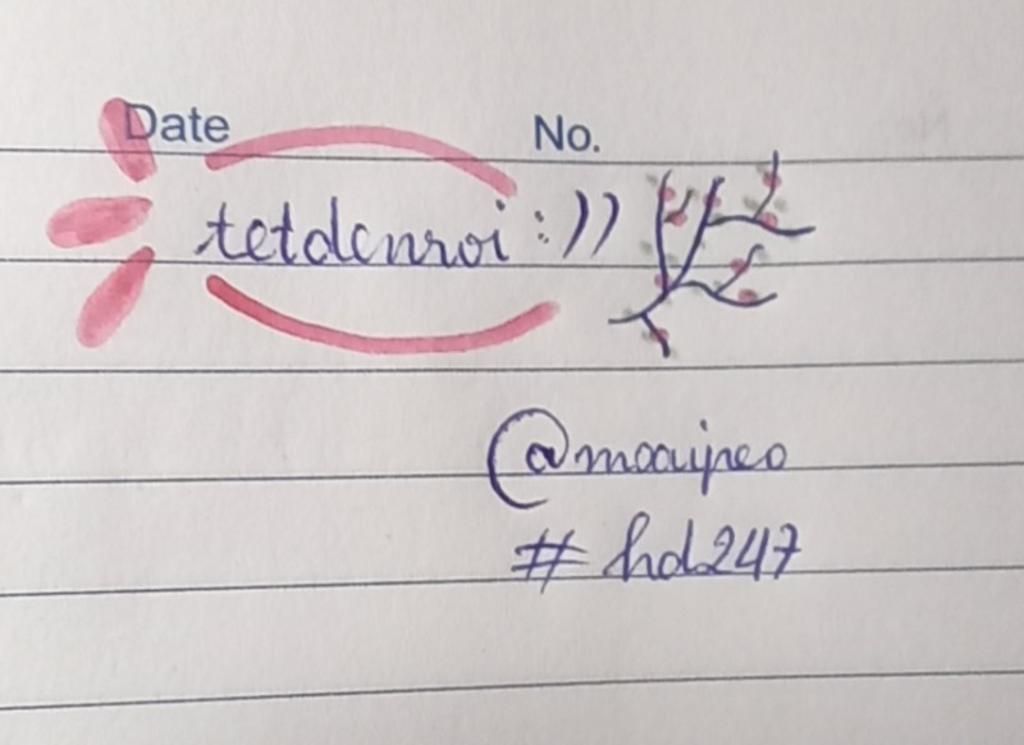 Date No.
tetdenroi :))
@moaijneo
#hd247